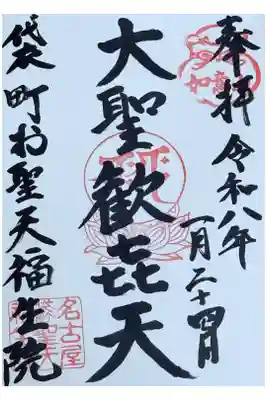 奉拝 令和八年
一月二十四日
大聖歓㐂天
袋町お聖天福生院
名古屋